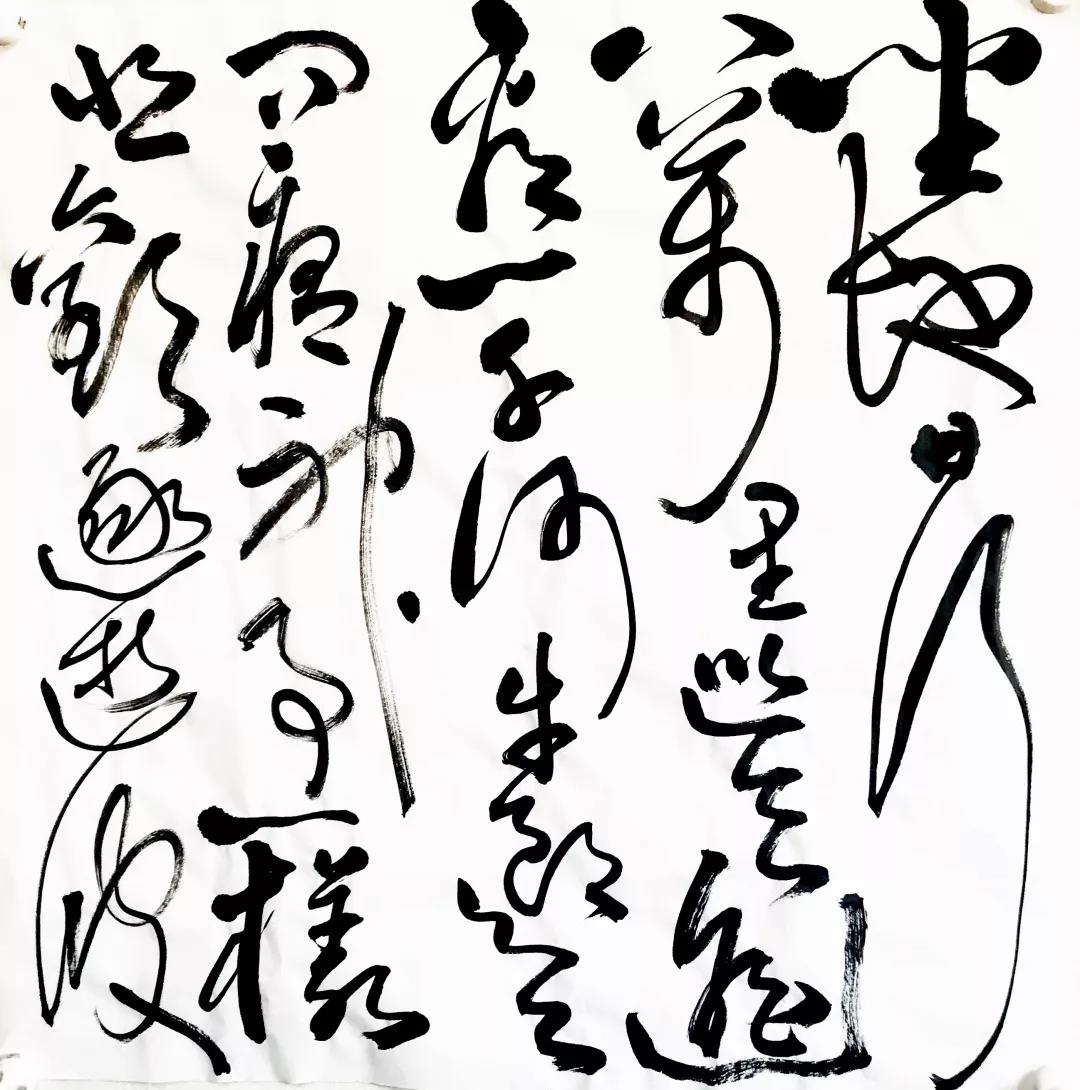 坐地日行
八萬里巡天遙
看一千河牛郎欲
問瘟神事一樣
悲歡逐逝波